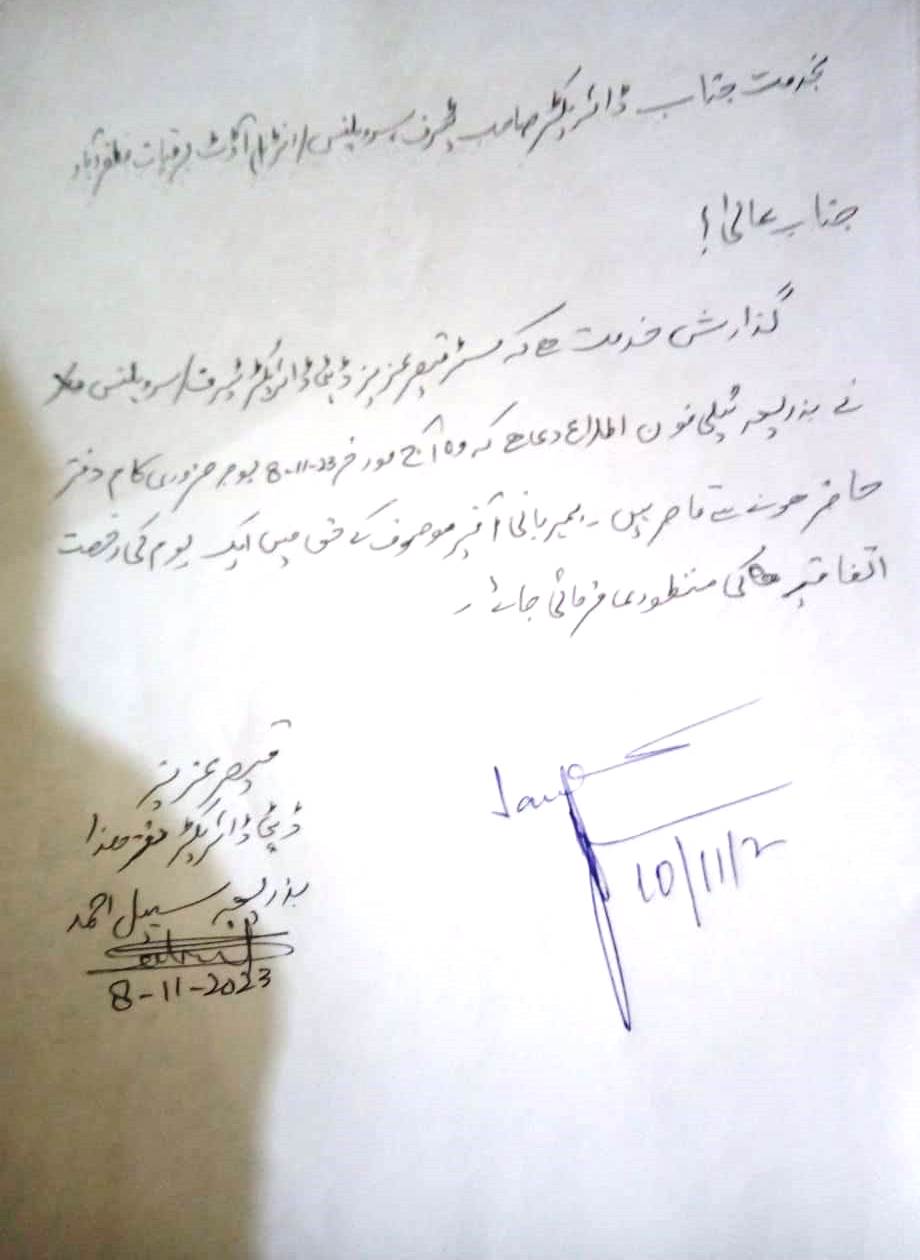 بخدمت جناب ڈائریکٹر صاحب ٹیرف، سرویلنس/انٹرنل آڈٹ برقیات مظفرآباد
جناب عالیٰ!
گذارش خدمت ہے کہ مسٹر قیصر عزیز ڈپٹی ڈائریکٹر ٹیرف/سرویلنس
نے بذریعہ ٹیلی فون اطلاع دی ہے کہ وہ آج مورخہ 8-11-23 بوجہ ضروری کام دفتر
حاضر ہونے سے قاصر ہیں ۔ بمہربانی آفیسر موصوف کے حق میں ایک یوم کی رخصت
اتفاقیہ کی منظوری فرمائی جائے ۔
قیصر عزیز
ڈپٹی ڈائریکٹر دفتر ھذا
بذریعہ سہیل احمد
8-11-2023
10/11/2